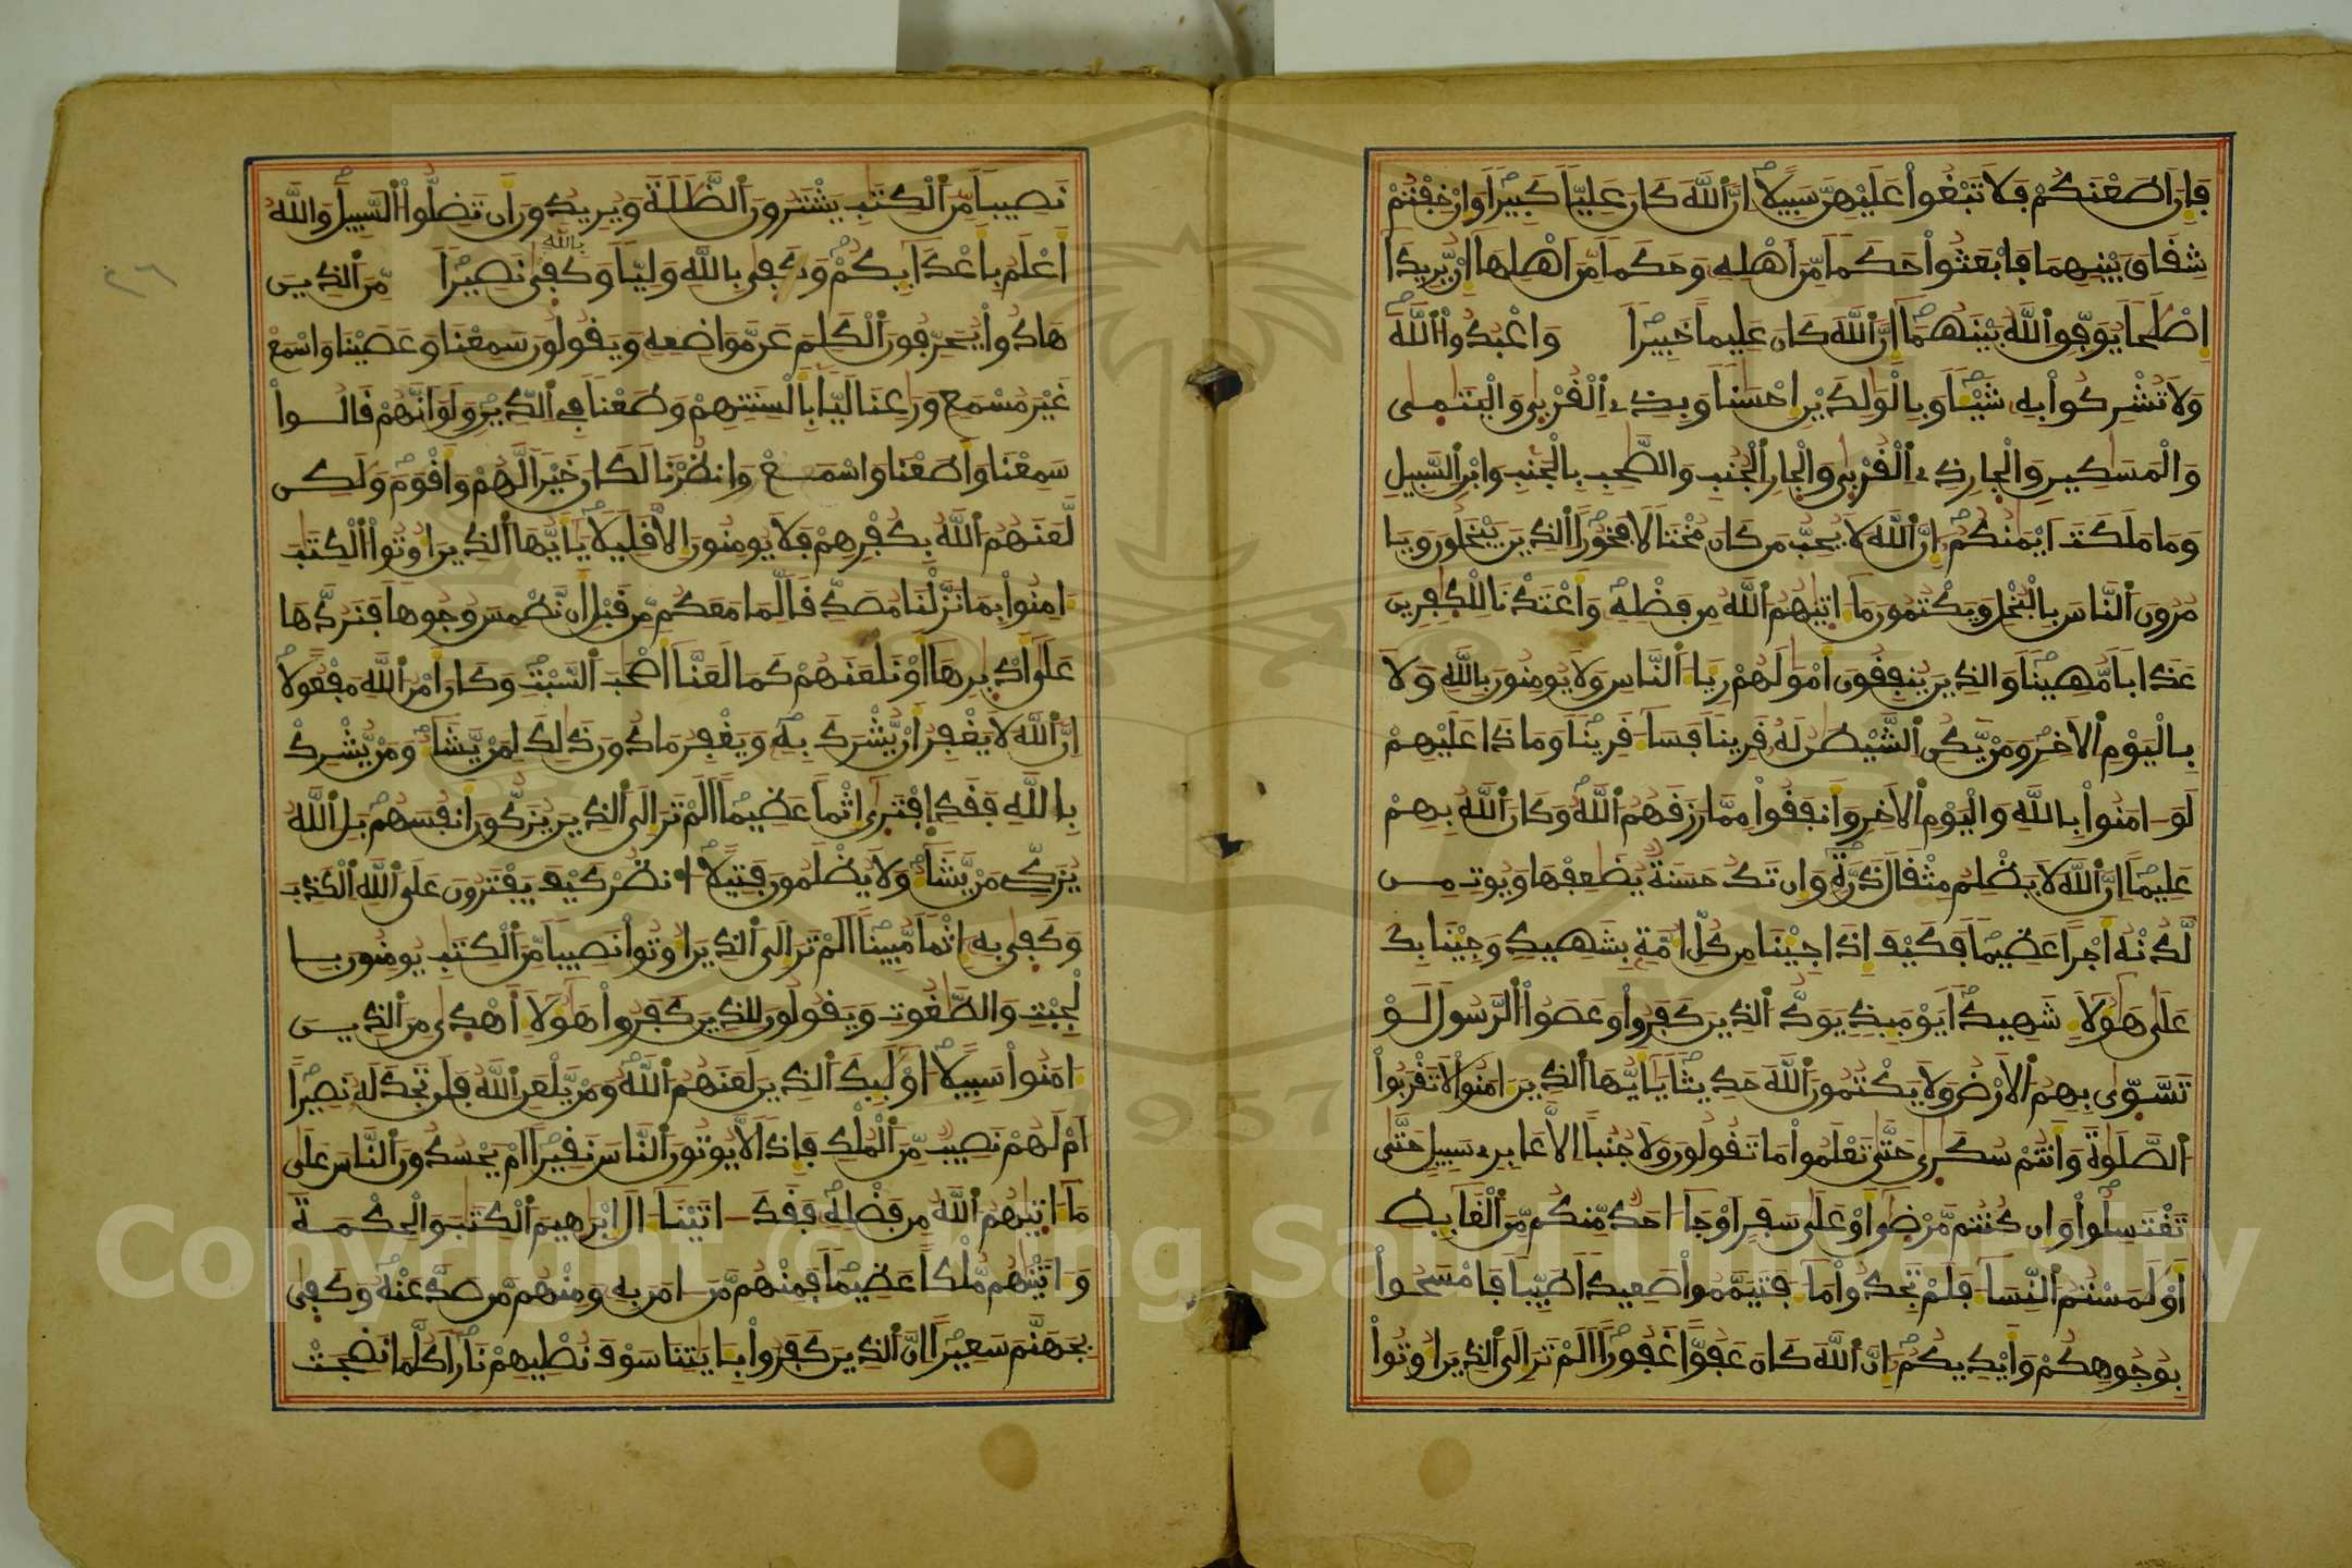 فَإِنَ اَطَعْنَكُمْ فَلَا تَبْغُوا۟ عَلَيْهِنَّ سَبِيلًا اِنَّ اَ۬للَّهَ كَانَ عَلِيّاً كَبِيراً وَإِنْ خِفْتُمْ
شِقَاقَ بَيْنِهِمَا فَابْعَثُوا۟ حَكَماً مِّنَ اَهْلِهِۦ وَحَكَماً مِّنَ اَهْلِهَا إِنْ يُّرِيدَا
إِصْلَحاً يُوَفِّقِ اِ۬للَّهُ بَيْنَهُمَا إِنَّ اَ۬للَّهَ كَانَ عَلِيماً خَبِيراً وَاعْبُدُوا۟ اُ۬للَّهَ
وَلَا تُشْرِكُوا۟ بِهِۦ شَيْـٔاً وَبِالْوَٰلِدَيْنِ إِحْسَٰناً وَبِذِے اِ۬لْقُرْبَىٰ وَالْيَتَٰمَىٰ
وَالْمَسَٰكِينِ وَالْجِارِ ذِے اِ۬لْقُرْبَىٰ وَالْجِارِ اِ۬لْجُنُبِ وَالصَّٰحِبِ بِالْجَنۢبِ وَابْنِ اِ۬لسَّبِيلِ
وَمَا مَلَكَتَ اَيْمَٰنُكُمْ إِنَّ اَ۬للَّهَ لَا يُحِبُّ مَن كَانَ مُخْتَالًا فَخُوراً اَ۬لذِينَ يَبْخَلُونَ وَيَا
مُرُونَ اَ۬لنَّاسَ بِالْبُخْلِ وَيَكْتُمُونَ مَا ءَاتَيٰهُمُ اُ۬للَّهُ مِن فَضْلِهِۦ وَأَعْتَدْنَا لِلْكٰ۪فِرِينَ
عَذَاباً مُّهِيناً وَالذِينَ يُنفِقُونَ أَمْوَٰلَهُمْ رِيَاءَ اَ۬لنَّاسِ وَلَا يُومِنُونَ بِاللَّهِ وَلَا
بِالْيَوْمِ اِ۬لَاخِرِ وَمَنْ يَّكُنِ اِ۬لشَّيْطَٰنُ لَهُۥ قَرِيناً فَسَاءَ قَرِيناً وَمَاذَا عَلَيْهِمْ
لَوَ ـ امَنُوا۟ بِاللَّهِ وَالْيَوْمِ اِ۬لَاخِرِ وَأَنفَقُوا۟ مِمَّا رَزَقَهُمُ اُ۬للَّهُ وَكَانَ اَ۬للَّهُ بِهِمْ
عَلِيماً اِنَّ اَ۬للَّهَ لَا يَظْلِمُ مِثْقَالَ ذَرَّةٍ وَإِن تَكُ حَسَنَةٌ يُضَٰعِفْهَا وَيُوتِ مِن
لَّدُنْهُ أَجْراً عَظِيماً فَكَيْفَ إِذَا جِيْنَا مِن كُلِّ أُمَّةِۢ بِشَهِيدٍ وَجِيْنَا بِكَ
عَلَىٰ هَٰؤُلَاءِ شَهِيداً يَوْمَئِذٍ يَوَدُّ اُ۬لذِينَ كَفَرُوا۟ وَعَصَوُا۟ اُ۬لرَّسُولَ لَوْ
تَسَّوّ۪ىٰ بِهِمُ اُ۬لَارْضُ وَلَا يَكْتُمُونَ اَ۬للَّهَ حَدِيثاً يَٰأَيُّهَا اَ۬لذِينَ ءَامَنُوا۟ لَا تَقْرَبُوا۟
اُ۬لصَّلَوٰةَ وَأَنتُمْ سُكَٰر۪ىٰ حَتَّىٰ تَعْلَمُوا۟ مَا تَقُولُونَ وَلَا جُنُباً اِلَّا عَابِرِے سَبِيلٍ حَتَّىٰ
تَغْتَسِلُوا۟ وَإِن كُنتُم مَّرْضَىٰ أَوْ عَلَىٰ سَفَرٍ اَوْ جَاءَ احَدٌ مِّنكُم مِّنَ اَ۬لْغَائِطِ
أَوْ لَٰمَسْتُمُ اُ۬لنِّسَاءَ فَلَمْ تَجِدُوا۟ مَاءً فَتَيَمَّمُوا۟ صَعِيداً طَيِّباً فَامْسَحُوا۟
بِوُجُوهِكُمْ وَأَيْدِيكُمْ إِنَّ اَ۬للَّهَ كَانَ عَفُوّاً غَفُوراً اَلَمْ تَرَ إِلَى اَ۬لذِينَ أُوتُوا۟
نَصِيباً مِّنَ اَ۬لْكِتَٰبِ يَشْتَرُونَ اَ۬لضَّلَٰلَةَ وَيُرِيدُونَ أَن تَضِلُّوا۟ اُ۬لسَّبِيلَ وَاللَّهُ
أَعْلَمُ بِأَعْدَائِكُمْ وَكَفَىٰ بِاللَّهِ وَلِيّاً وَكَفَىٰ بِاللَّهِ نَصِيراً مِّنَ اَ۬لذِينَ
هَادُوا۟ يُحَرِّفُونَ اَ۬لْكَلِمَ عَن مَّوَاضِعِهِۦ وَيَقُولُونَ سَمِعْنَا وَعَصَيْنَا وَاسْمَعْ
غَيْرَ مُسْمَعٍ وَرَٰعِنَا لَيّاً بِأَلْسِنَتِهِمْ وَطَعْناً فِے اِ۬لدِّينِ وَلَوَ اَنَّهُمْ قَالُوا۟
سَمِعْنَا وَأَطَعْنَا وَاسْمَعْ وَانظُرْنَا لَكَانَ خَيْراً لَّهُمْ وَأَقْوَمَ وَلَٰكِن
لَّعَنَهُمُ اُ۬للَّهُ بِكُفْرِهِمْ فَلَا يُومِنُونَ إِلَّا قَلِيلًا يَٰأَيُّهَا اَ۬لذِينَ أُوتُوا۟ اُ۬لْكِتَٰبَ
ءَامِنُوا۟ بِمَا نَزَّلْنَا مُصَدِّقاً لِّمَا مَعَكُم مِّن قَبْلِ أَن نَّطْمِسَ وُجُوهاً فَنَرُدَّهَا
عَلَىٰ أَدْبٰ۪رِهَا أَوْ نَلْعَنَهُمْ كَمَا لَعَنَّا أَصْحَٰبَ اَ۬لسَّبْتِ وَكَانَ أَمْرُ اُ۬للَّهِ مَفْعُولًا
اِنَّ اَ۬للَّهَ لَا يَغْفِرُ أَنْ يُّشْرَكَ بِهِۦ وَيَغْفِرُ مَا دُونَ ذَٰلِكَ لِمَنْ يَّشَاءُ وَمَنْ يُّشْرِكْ
بِاللَّهِ فَقَدِ اِ۪فْتَر۪ىٰ إِثْماً عَظِيماً اَلَمْ تَرَ إِلَى اَ۬لذِينَ يُزَكُّونَ أَنفُسَهُم بَلِ اِ۬للَّهُ
يُزَكِّے مَنْ يَّشَاءُ وَلَا يُظْلَمُونَ فَتِيلًا اُ۟نظُرْ كَيْفَ يَفْتَرُونَ عَلَى اَ۬للَّهِ اِ۬لْكَذِبَ
وَكَفَىٰ بِهِۦ إِثْماً مُّبِيناً اَلَمْ تَرَ إِلَى اَ۬لذِينَ أُوتُوا۟ نَصِيباً مِّنَ اَ۬لْكِتَٰبِ يُومِنُونَ بِا
لْجِبْتِ وَالطَّٰغُوتِ وَيَقُولُونَ لِلذِينَ كَفَرُوا۟ هَٰؤُلَاءِ أَهْد۪ىٰ مِنَ اَ۬لذِينَ
ءَامَنُوا۟ سَبِيلًا اُوْلَٰئِكَ اَ۬لذِينَ لَعَنَهُمُ اُ۬للَّهُ وَمَنْ يَّلْعَنِ اِ۬للَّهُ فَلَن تَجِدَ لَهُۥ نَصِيراً
اَمْ لَهُمْ نَصِيبٌ مِّنَ اَ۬لْمُلْكِ فَإِذاً لَّا يُوتُونَ اَ۬لنَّاسَ نَقِيراً اَمْ يَحْسُدُونَ اَ۬لنَّاسَ عَلَىٰ
مَا ءَاتَيٰهُمُ اُ۬للَّهُ مِن فَضْلِهِۦ فَقَدَ ـ اتَيْنَا ءَالَ إِبْرَٰهِيمَ اَ۬لْكِتَٰبَ وَالْحِكْمَةَ
وَءَاتَيْنَٰهُم مُّلْكاً عَظِيماً فَمِنْهُم مَّنَ ـ امَنَ بِهِۦ وَمِنْهُم مَّن صَدَّ عَنْهُ وَكَفَىٰ
بِجَهَنَّمَ سَعِيراً اِنَّ اَ۬لذِينَ كَفَرُوا۟ بِـَٔايَٰتِنَا سَوْفَ نُصْلِيهِمْ نَاراً كُلَّمَا نَضِجَتْ
٢٦
Copyright © King Saud University
1957